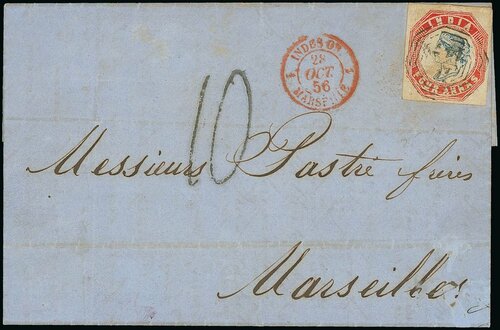 INDES OR.
28
OCT.
56
MARSEILLE
INDIA
FOUR ANNAS
10
Messieurs Pastré frères
Marseilles